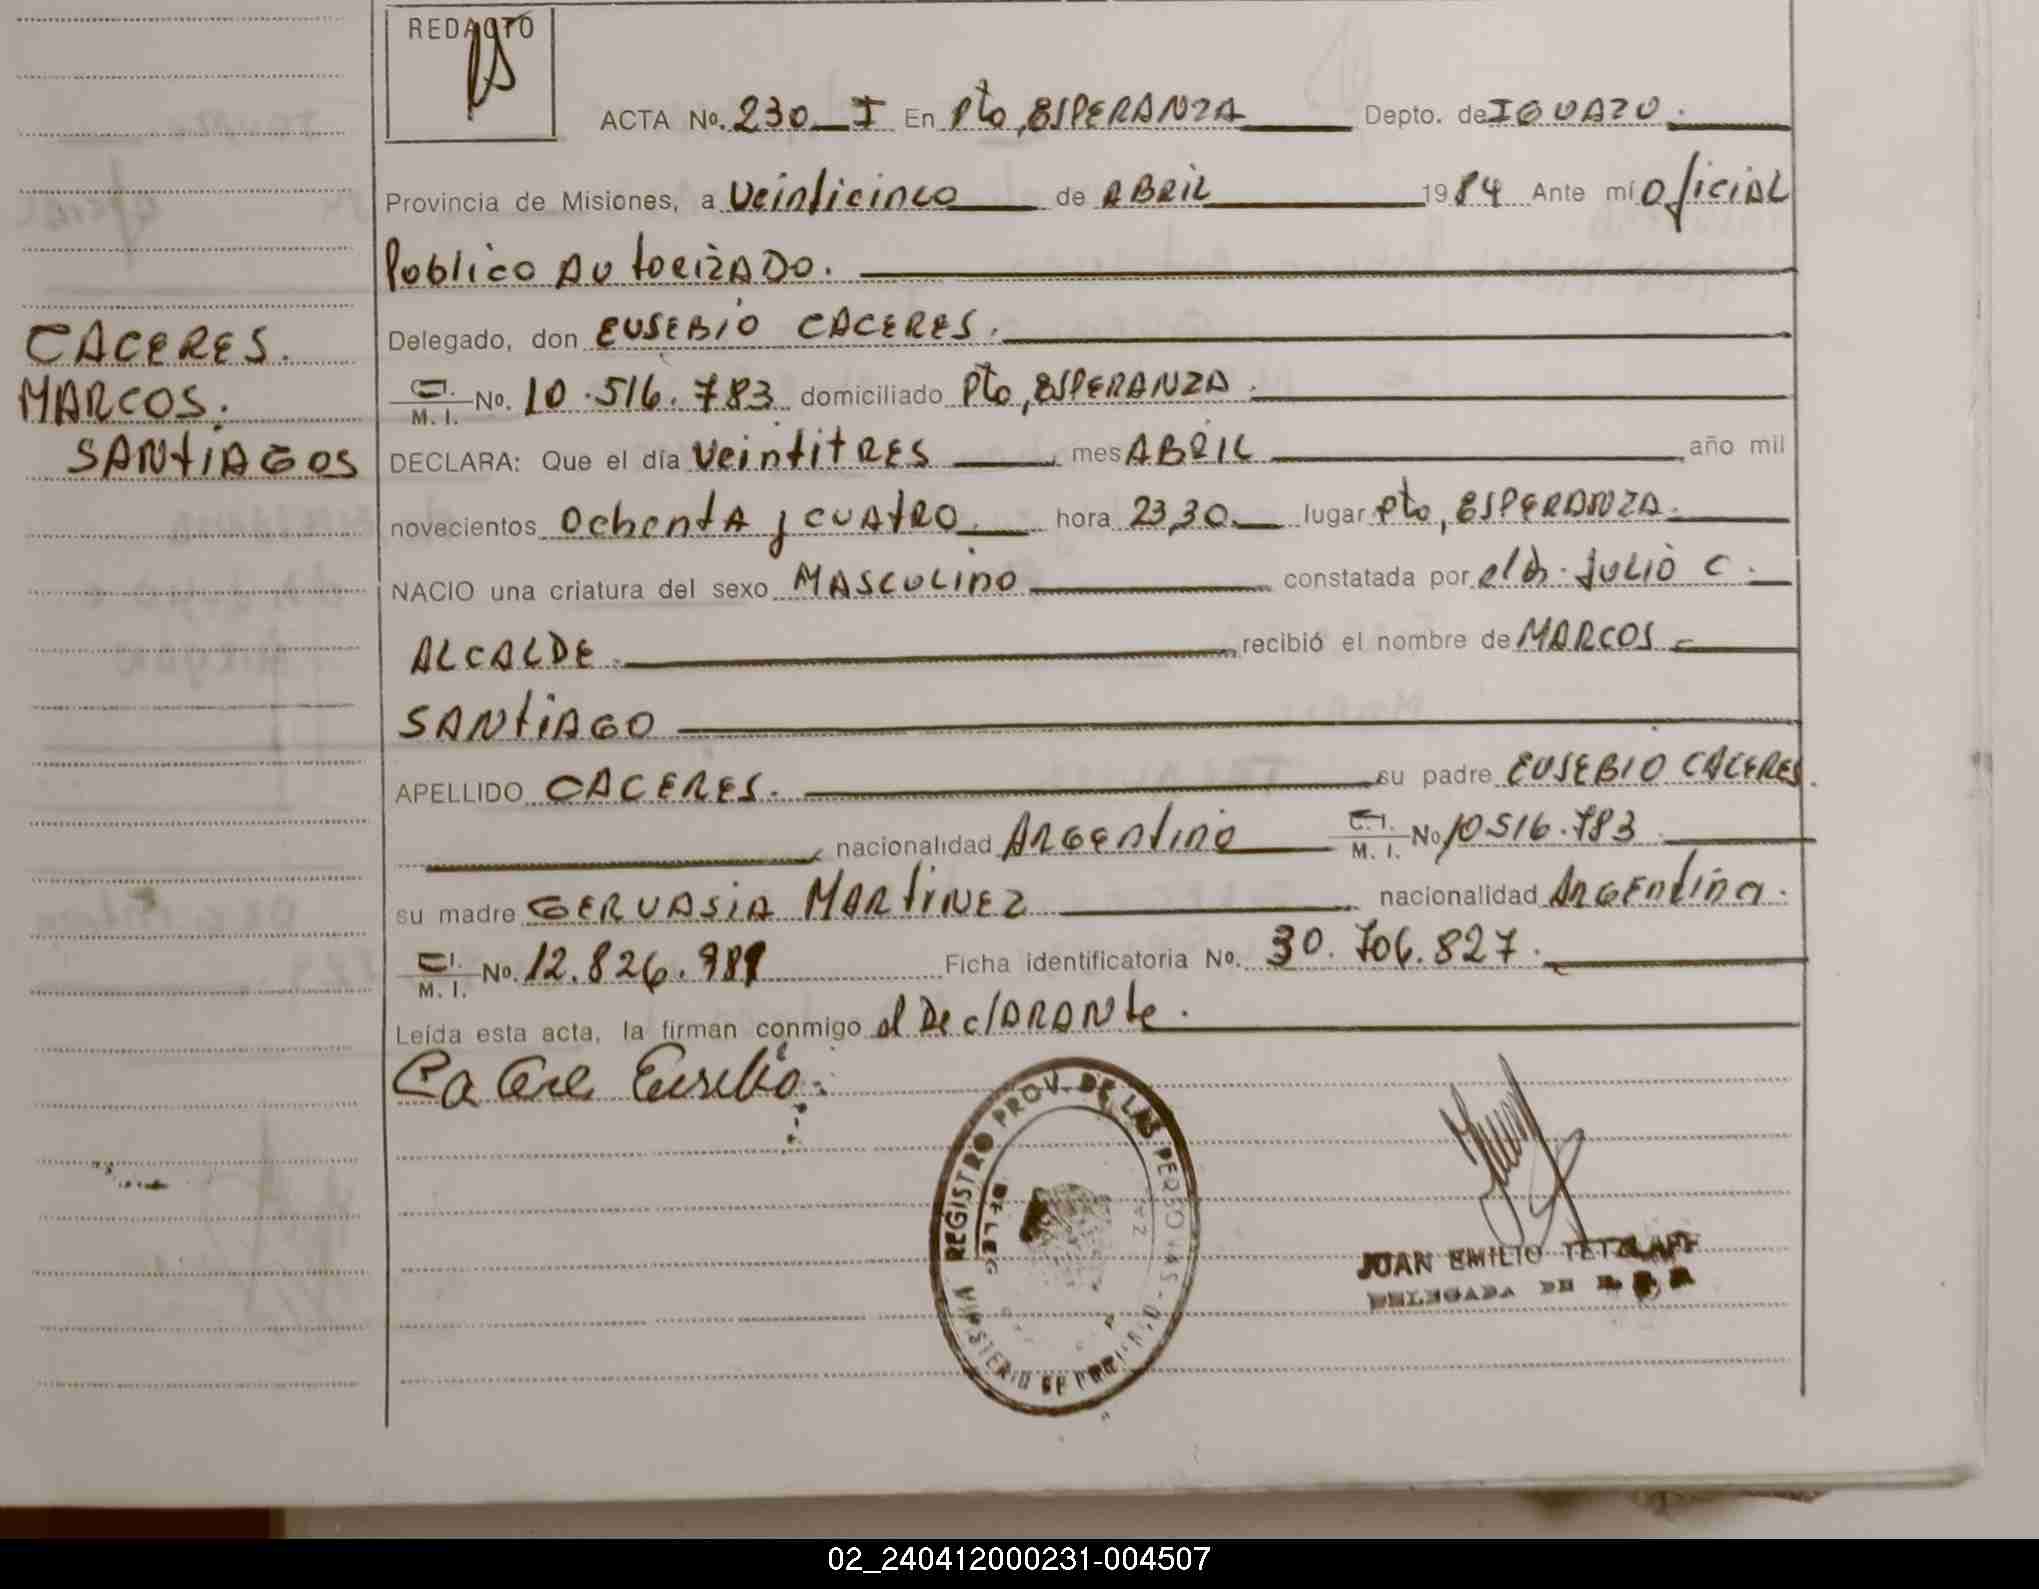 REDACTO
ACTA No. 230 I En Pto, ESPERANZA Depto. de IGUAZU.
Provincia de Misiones, a veinticinco de ABRIL 1984 Ante mí Oficial
Publico AUtorizADO.
CACERES.
MARCOS.
SANtiAGOS
Delegado, don EUSEBIO CACERES.
C.I.
M. I. No. 10.516.783 domiciliado Pto, ESPERANZA.
DECLARA: Que el día veintitRES, mes ABRIL año mil
novecientos OchentA y CUAtRO. hora 23,30. lugar Pto, ESPERANZA.
NACIO una criatura del sexo MASCULINO constatada por el Dr. JULIO C.
ALCALDE. recibió el nombre de MARCOS
SANtiAGO
APELLIDO CACERES. su padre EUSEBIO CACERES.
nacionalidad ARGENtino C.I.
M. I. No 10516.783
su madre GERVASIA MARtiNEZ nacionalidad ARGENtina.
C.I.
M. I. No. 12.826.989 Ficha identificatoria No. 30.706.827.
Leída esta acta, la firman conmigo el DeclARANte.
Eusebio
REGISTRO PROV. DE LAS PERSONAS
DELEG
JUAN EMILIO TETZLAFF
DELEGADA DE
02_240412000231-004507